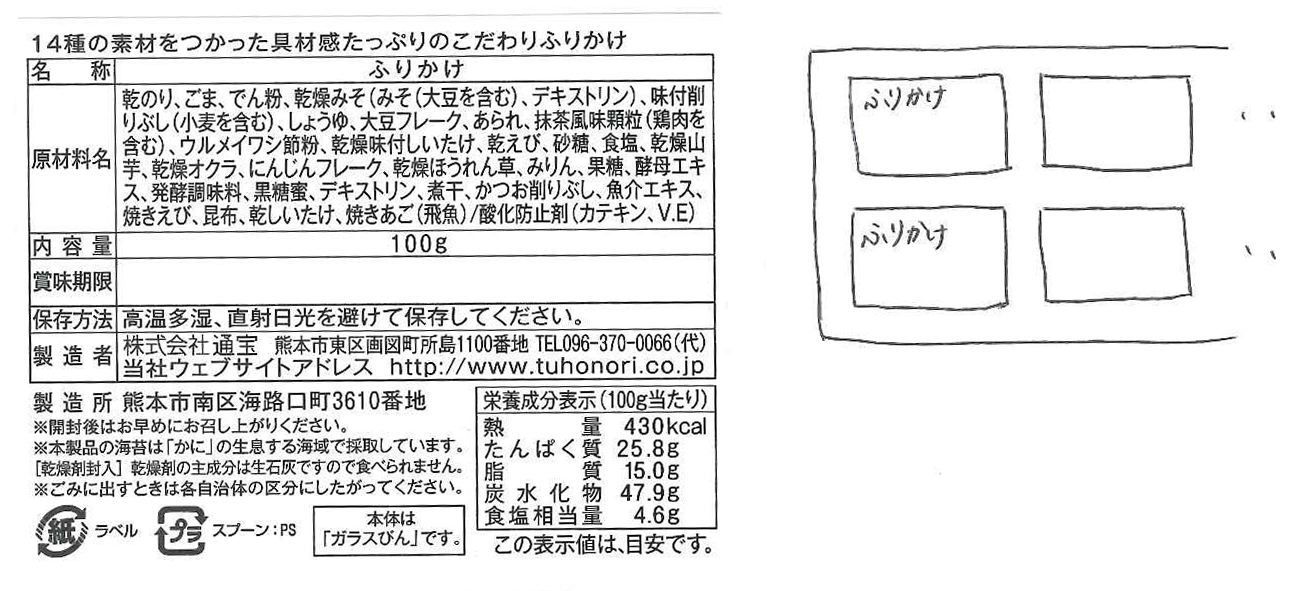 14種の素材をつかった具材感たっぷりのこだわりふりかけ
名称 ふりかけ
原材料名 乾のり、ごま、でん粉、乾燥みそ(みそ(大豆を含む)、デキストリン)、味付削
りぶし(小麦を含む)、しょうゆ、大豆フレーク、あられ、抹茶風味顆粒(鶏肉を
含む)、ウルメイワシ節粉、乾燥味付しいたけ、乾えび、砂糖、食塩、乾燥山
芋、乾燥オクラ、にんじんフレーク、乾燥ほうれん草、みりん、果糖、酵母エキ
ス、発酵調味料、黒糖蜜、デキストリン、煮干、かつお削りぶし、魚介エキス、
焼きえび、昆布、乾しいたけ、焼きあご(飛魚)/酸化防止剤(カテキン、V.E)
内容量 100g
賞味期限
保存方法 高温多湿、直射日光を避けて保存してください。
製造者 株式会社通宝 熊本市東区画図町所島1100番地 TEL096-370-0066(代)
当社ウェブサイトアドレス http://www.tuhonori.co.jp
製造所 熊本市南区海路口町3610番地
※開封後はお早めにお召し上がりください。
※本製品の海苔は「かに」の生息する海域で採取しています。
[乾燥剤封入] 乾燥剤の主成分は生石灰ですので食べられません。
※ごみに出すときは各自治体の区分にしたがってください。
紙 ラベル
プラ スプーン:PS
本体は
「ガラスびん」です。
栄養成分表示(100g当たり)
熱量 430kcal
たんぱく質 25.8g
脂質 15.0g
炭水化物 47.9g
食塩相当量 4.6g
この表示値は、目安です。
ふりかけ
ふりかけ